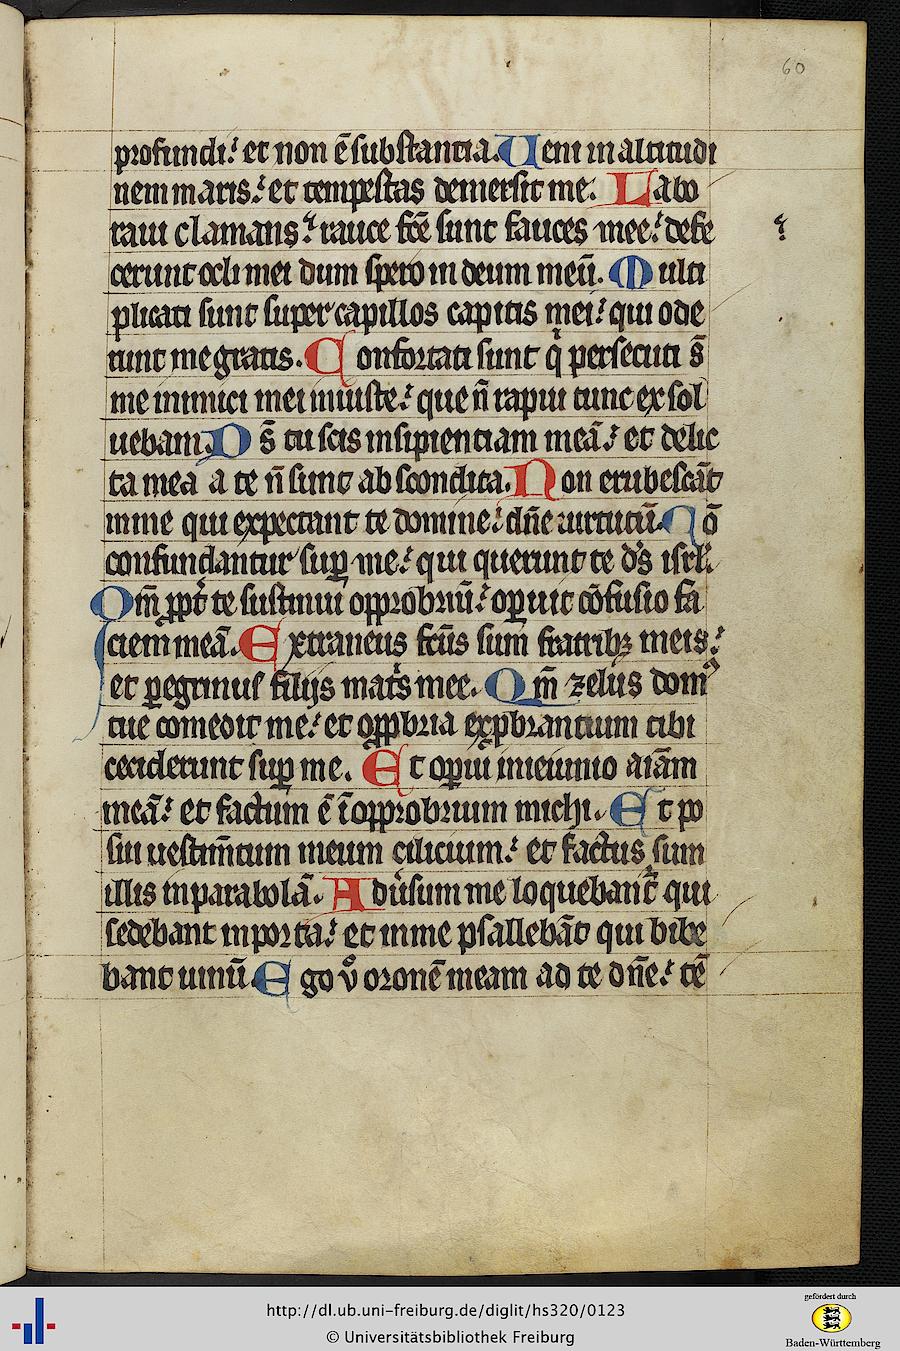 60
profundi: et non ē substantia. Ueni in altitudi
nem maris: et tempestas demersit me. Labo
raui clamans: rauce fc̄e sunt fauces mee: defe
cerunt ocl̄i mei dum spero in deum meū. Multi
plicati sunt super capillos capitis mei: qui ode
runt me gratis. Confortati sunt q̄ persecuti s̄
me inimici mei iniuste: que n̄ rapui tunc exsol
uebam. Ds̄ tu scis insipientiam meā: et delic
ta mea a te n̄ sunt abscondita. Non erubescāt
in me qui expectant te domine: dn̄e uirtutū. Nō
confundantur suꝑ me: qui querunt te ds̄ isrl̄.
Qm̄ ꝓpt̄ te sustinui opprobriū: oꝑuit cōfusio fa
ciem meā. Extraneus fc̄us sum fratribꝫ meis:
et ꝑegrinus filijs mat̄s mee. Qm̄ zelus domꝰ
tue comedit me: et opꝓbria exꝓbrantium tibi
ceciderunt suꝑ me. Et oꝑui in ieiunio aīam
meā: et factum ē ī opprobrium michi. Et po
sui uestim̄tum meum cilicium: et factus sum
illis in parabolā. Aduersum me loquebant̄ qui
sedebant in porta: et in me psallebāt qui bibe
bant uinū. Ego v̊ oronē meam ad te dn̄e: tē
http://dl.ub.uni-freiburg.de/diglit/hs320/0123
© Universitätsbibliothek Freiburg
gefördert durch
Baden-Württemberg